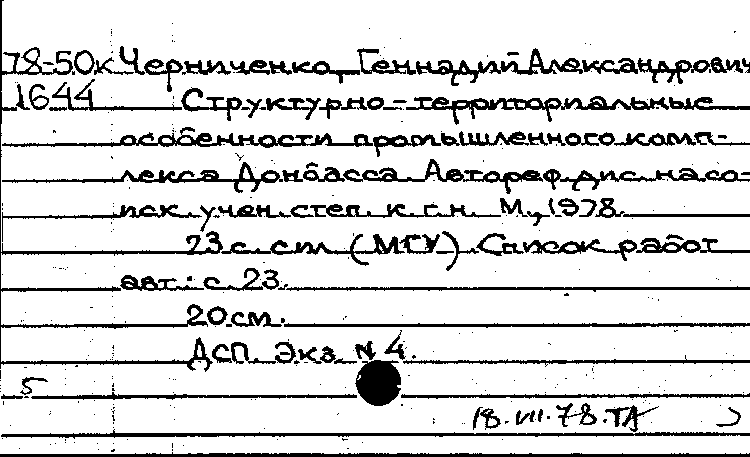 78-50к Черниченко, Геннадий Александрович
1644 Структурно-территориальные
особенности промышленного комп-
лекса Донбасса. Автореф. дис. на со-
иск. учен. степ. к. г. н. М., 1978.
23 с. сил (МГУ). Список работ
авт.: с. 23.
20 см.
ДСП. Экз. N 4.
5
18.VII.78.ТА